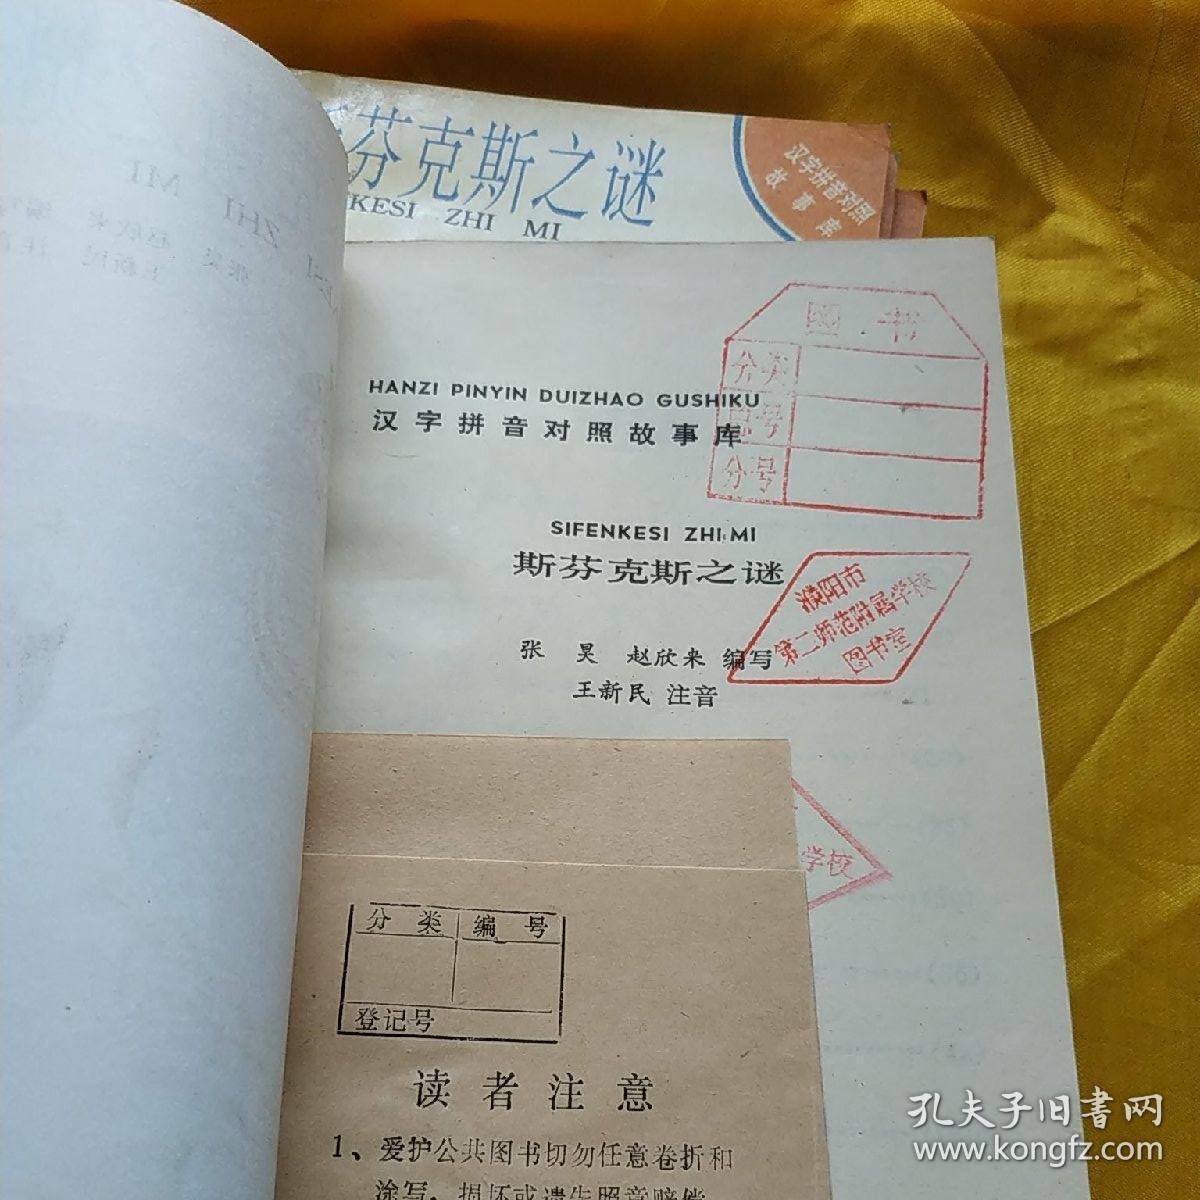 芬克斯之谜
KESI ZHI MI
汉字拼音对照
故事库
HANZI PINYIN DUIZHAO GUSHIKU
汉字拼音对照故事库
SIFENKESI ZHI MI
斯芬克斯之谜
张昊 赵欣来 编写
王新民 注音
图书
分类
总号
分号
濮阳市
第二师范附属学校
图书室
学校
分类 编号
登记号
读者注意
1、爱护公共图书切勿任意卷折和
涂写，损坏或遗失照章赔偿
孔夫子旧书网
www.kongfz.com